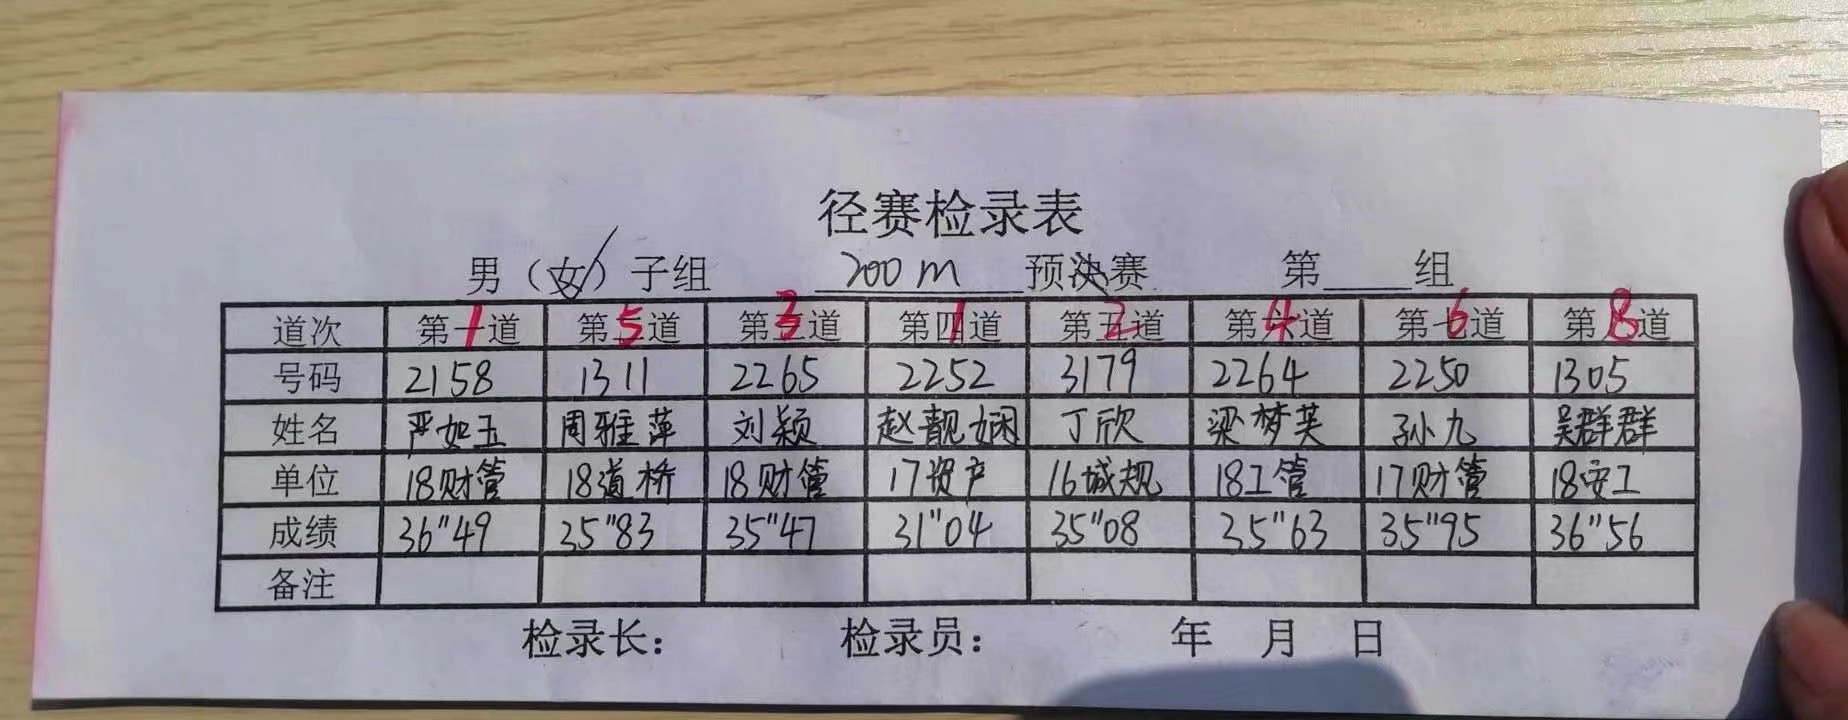 径赛检录表
男（女）子组 200m 预决赛 第____组
道次 第一道 1 第二道 5 第三道 3 第四道 1 第五道 2 第六道 4 第七道 6 第八道 8
号码 2158 1311 2265 2252 3179 2264 2250 1305
姓名 严如玉 周雅萍 刘颖 赵靓娴 丁欣 梁梦芙 孙九 吴群群
单位 18财管 18道桥 18财管 17资产 16城规 18工管 17财管 18安工
成绩 36"49 35"83 35"47 31"04 35"08 35"63 35"95 36"56
备注
检录长： 检录员： 年 月 日